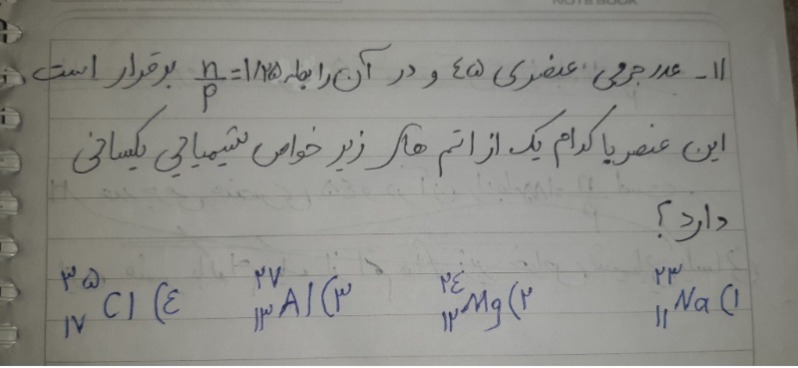 ۱۱- عدد جرمی عنصری ٤۵ و در آن رابطه n/p = ۱/۲۵ برقرار است
این عنصر با کدام یک از اتم های زیر خواص شیمیایی یکسانی
دارد؟
۱) ²³₁₁Na ۲) ²⁴₁₂Mg ۳) ²⁷₁₃Al ٤) ³⁵₁₇Cl